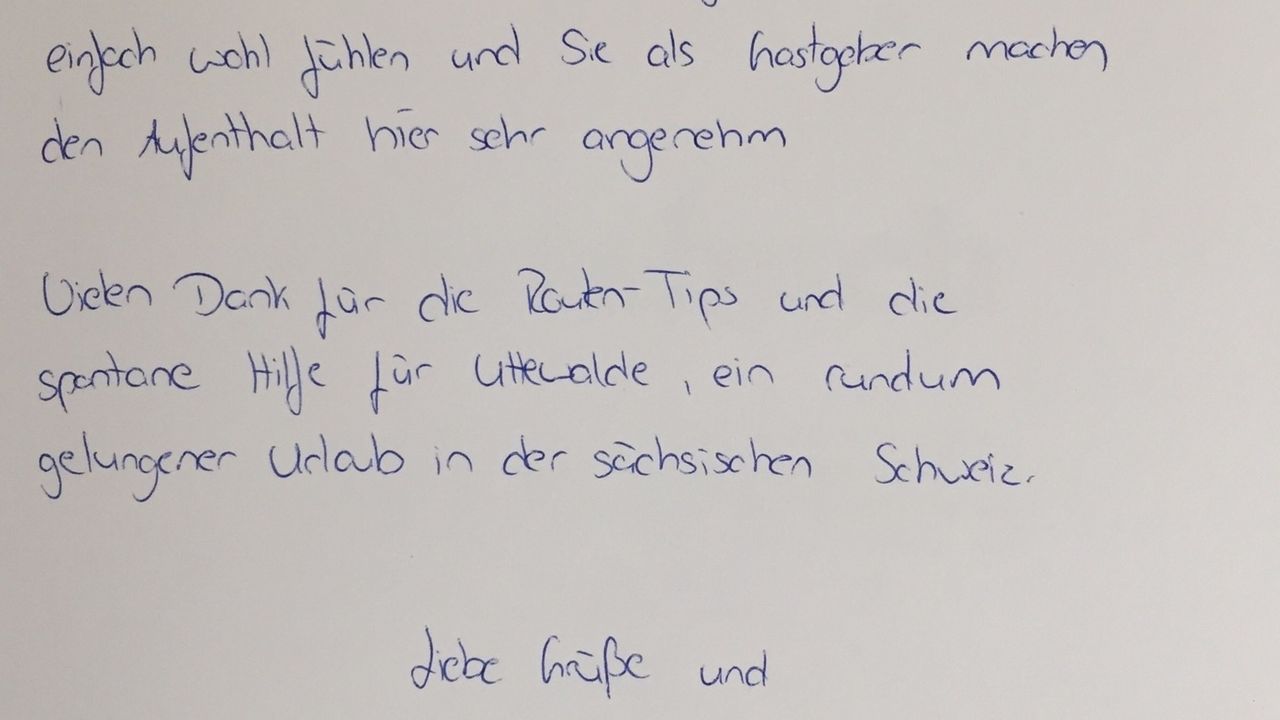 einfach wohl fühlen und Sie als Gastgeber machen
den Aufenthalt hier sehr angenehm
Vielen Dank für die Routen-Tips und die
spontane Hilfe für Uttewalde, ein rundum
gelungener Urlaub in der sächsischen Schweiz.
Liebe Grüße und